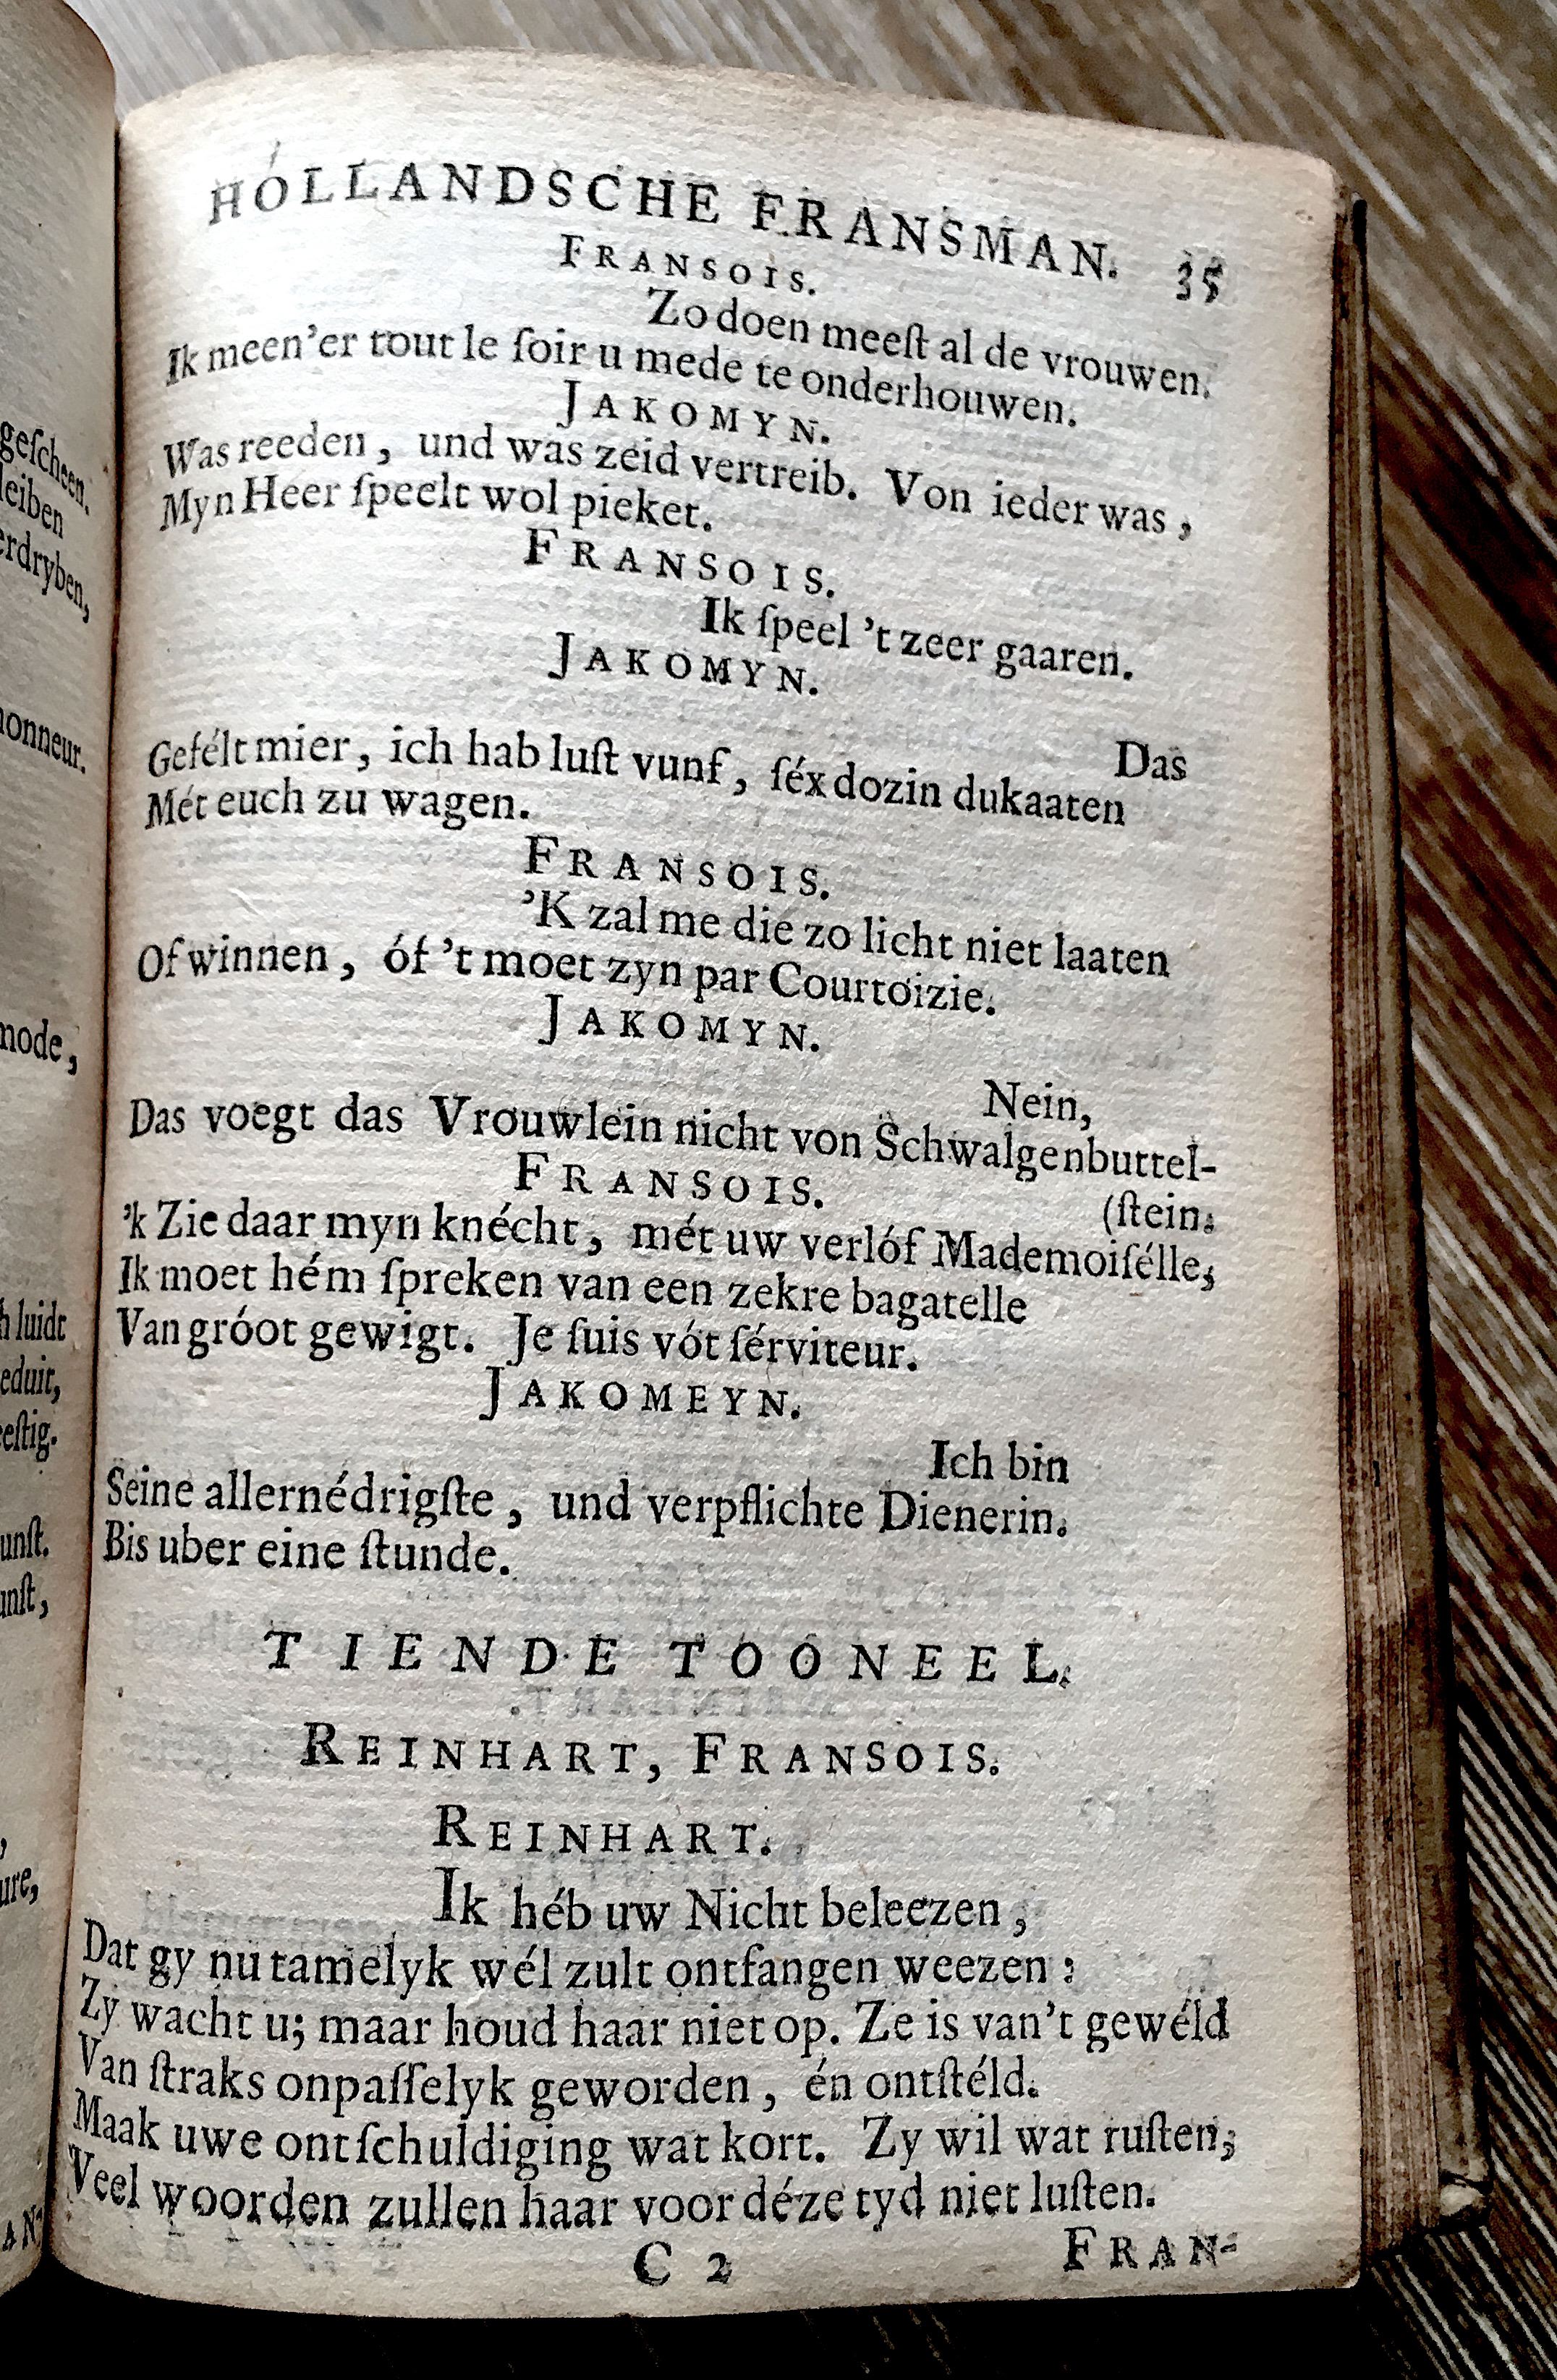 HOLLANDSCHE FRANSMAN. 35
FRANSOIS.
Zo doen meeſt al de vrouwen.
Ik meen'er tout le ſoir u mede te onderhouwen.
JAKOMYN.
Was reeden, und was zeid vertreib. Von ieder was,
Myn Heer ſpeelt wol pieket.
FRANSOIS.
Ik ſpeel 't zeer gaaren.
JAKOMYN.
Das
Gefélt mier, ich hab luſt vunf, ſéx dozin dukaaten
Mét euch zu wagen.
FRANSOIS.
'K zal me die zo licht niet laaten
Of winnen, óf 't moet zyn par Courtoizie.
JAKOMYN.
Nein,
Das voegt das Vrouwlein nicht von Schwalgenbuttel-
(ſtein.
FRANSOIS.
'k Zie daar myn knécht, mét uw verlóf Mademoiſélle,
Ik moet hém ſpreken van een zekre bagatelle
Van gróot gewigt. Je ſuis vót ſérviteur.
JAKOMEYN.
Ich bin
Seine allernédrigſte, und verpflichte Dienerin.
Bis uber eine ſtunde.
TIENDE TOONEEL.
REINHART, FRANSOIS.
REINHART.
Ik héb uw Nicht beleezen,
Dat gy nu tamelyk wél zult ontfangen weezen:
Zy wacht u; maar houd haar niet op. Ze is van't gewéld
Van ſtraks onpaſſelyk geworden, én ontſtéld.
Maak uwe ontſchuldiging wat kort. Zy wil wat ruſten;
Veel woorden zullen haar voor déze tyd niet luſten.
C 2 FRAN-
geſcheen.
leiben
erdryben,
honneur.
mode,
luidt
eduit,
eeſtig.
unſt.
unſt,
ure,